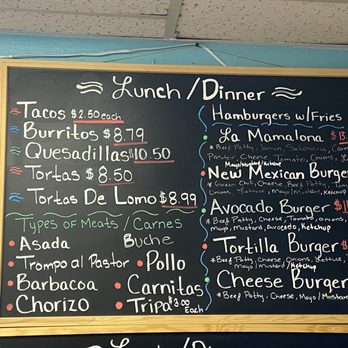 Lunch / Dinner
Tacos $2.50 each
Burritos $8.79
Quesadillas $10.50
Tortas $8.50
Tortas De Lomo $8.99
Types of Meats / Carnes
Asada Buche
Trompo al Pastor Pollo
Barbacoa Carnitas
Chorizo Tripa $3.00 Each
Hamburgers w/Fries
La Mamalona
Pastor, Cheese, Tomato, Onions
Mayo/Mustard/Ketchup
New Mexican Burger
* Green Chili, Cheese, Beef Patty
Avocado Burger
* Beef Patty, Cheese, Tomato, onions
mayo, mustard, avocado, Ketchup
Tortilla Burger
* Beef Patty, Cheese, Onions, Lettuce
mayo/mustard/Ketchup
Cheese Burger
* Beef Patty, Cheese, Mayo/